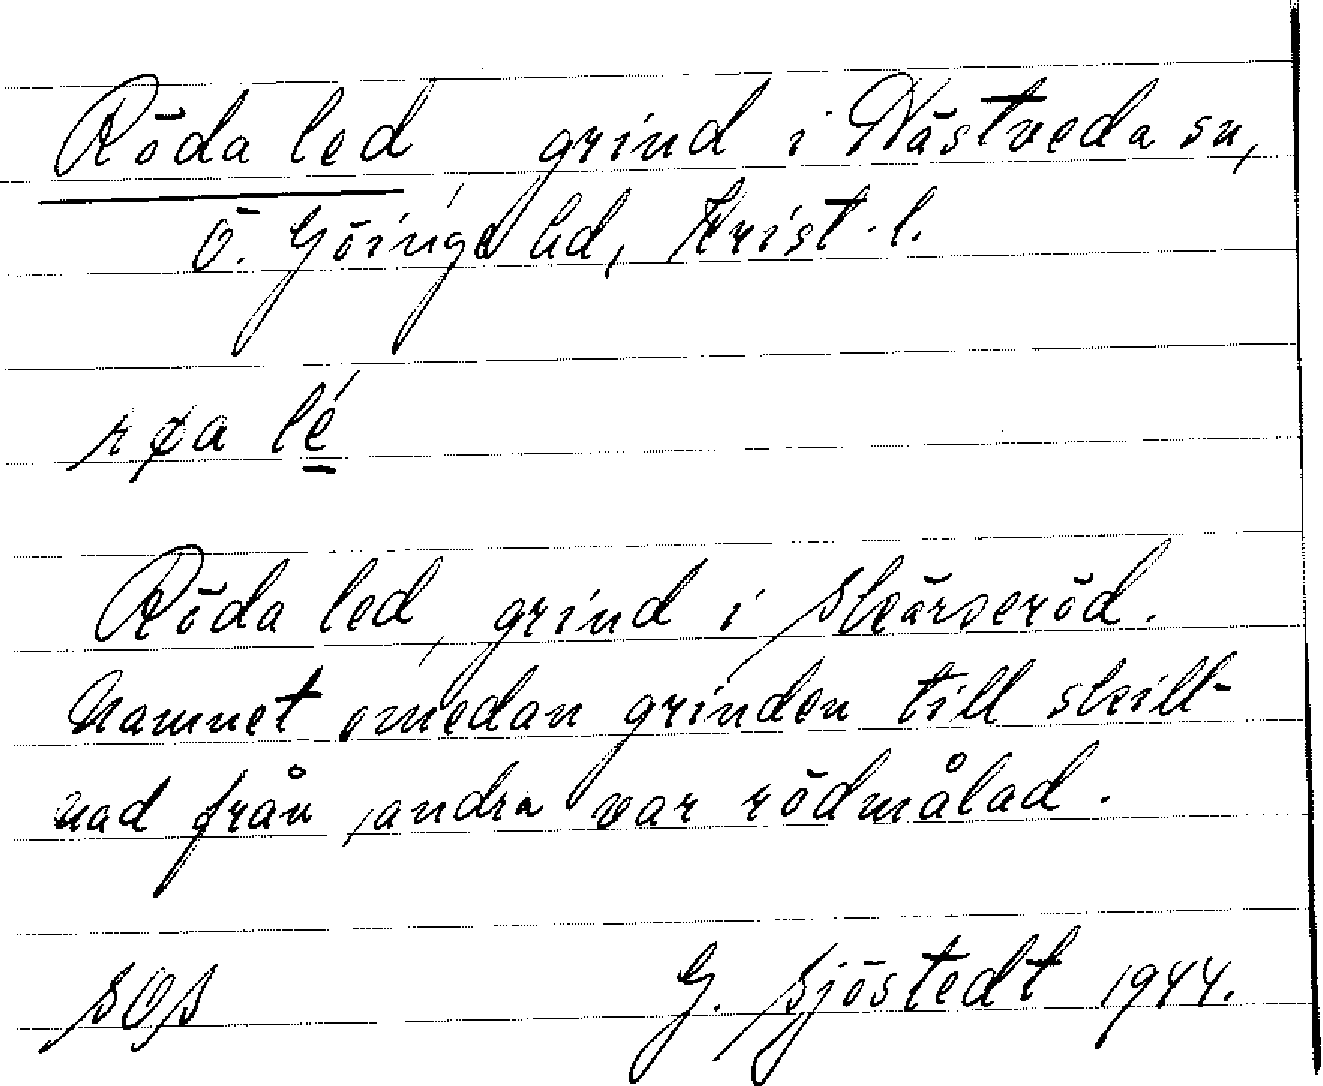 Röda led grind i Nästveda sn,
Ö. Göinge hd, Krist. l.
røa lé
Röda led, grind i Skärseröd.
Namnet emedan grinden till skill-
nad från andra var rödmålad.
SOS G. Sjöstedt 1944.